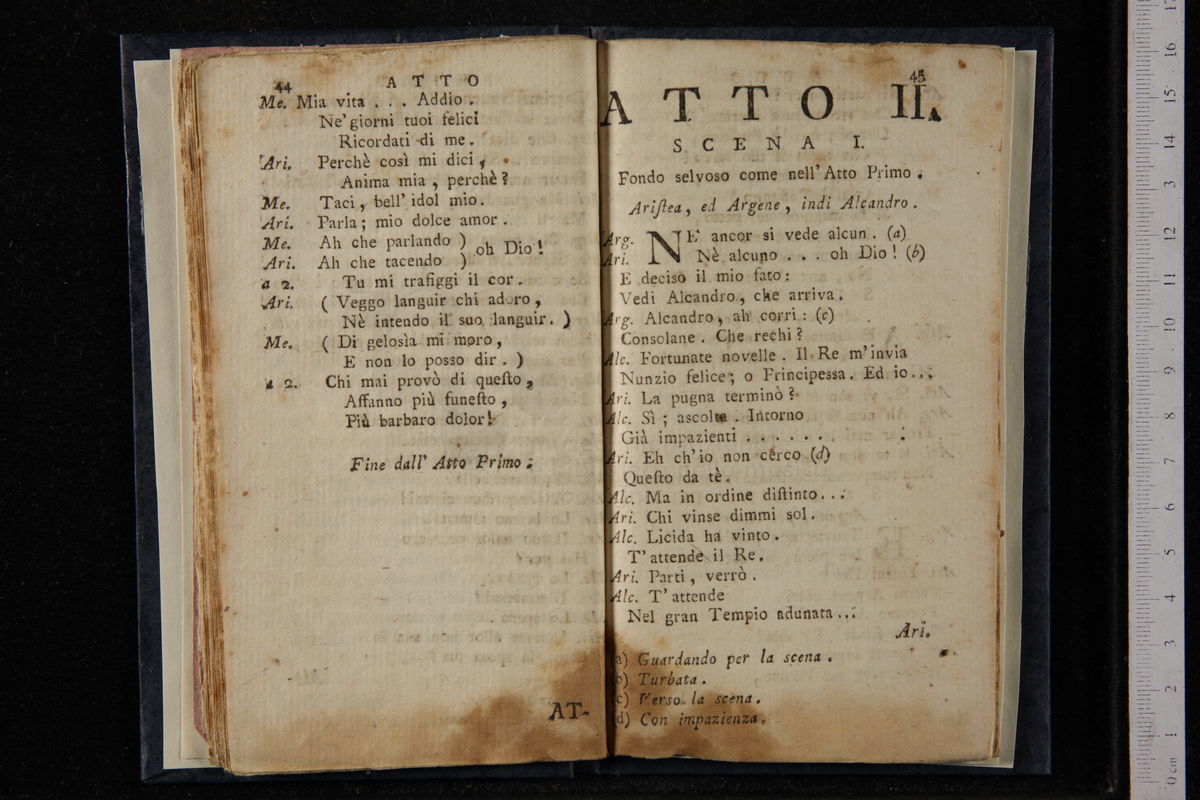 44
ATTO
Me. Mia vita . . . Addio.
Ne'giorni tuoi felici
Ricordati di me.
Ari. Perchè così mi dici,
Anima mia, perchè?
Me. Taci, bell' idol mio.
Ari. Parla; mio dolce amor.
Me. Ah che parlando ) oh Dio!
Ari. Ah che tacendo )
a 2. Tu mi trafiggi il cor.
Ari. ( Veggo languir chi adoro,
Nè intendo il suo languir. )
Me. ( Di gelosìa mi moro,
E non lo posso dir. )
a 2. Chi mai provò di queſto,
Affanno più funeſto,
Più barbaro dolor!
Fine dall' Atto Primo.
AT-
45
ATTO II.
SCENA I.
Fondo selvoso come nell'Atto Primo.
Ariſtea, ed Argene, indi Alcandro.
Arg. NE' ancor si vede alcun. (a)
Ari. Nè alcuno . . . oh Dio! (b)
E deciso il mio fato:
Vedi Alcandro, che arriva.
Arg. Alcandro, ah corri: (c)
Consolane. Che rechi?
Alc. Fortunate novelle. Il Re m'invia
Nunzio felice; o Principessa. Ed io...
Ari. La pugna terminò?
Alc. Sì; ascolta. Intorno
Già impazienti . . . . . .
Ari. Eh ch'io non cerco (d)
Queſto da tè.
Alc. Ma in ordine diſtinto...
Ari. Chi vinse dimmi sol.
Alc. Licida ha vinto.
T'attende il Re.
Ari. Parti, verrò.
Alc. T'attende
Nel gran Tempio adunata...
Ari.
(a) Guardando per la scena.
(b) Turbata.
(c) Verso la scena.
(d) Con impazienza.
0 cm 1 2 3 4 5 6 7 8 9 10 11 12 13 14 15 16 17